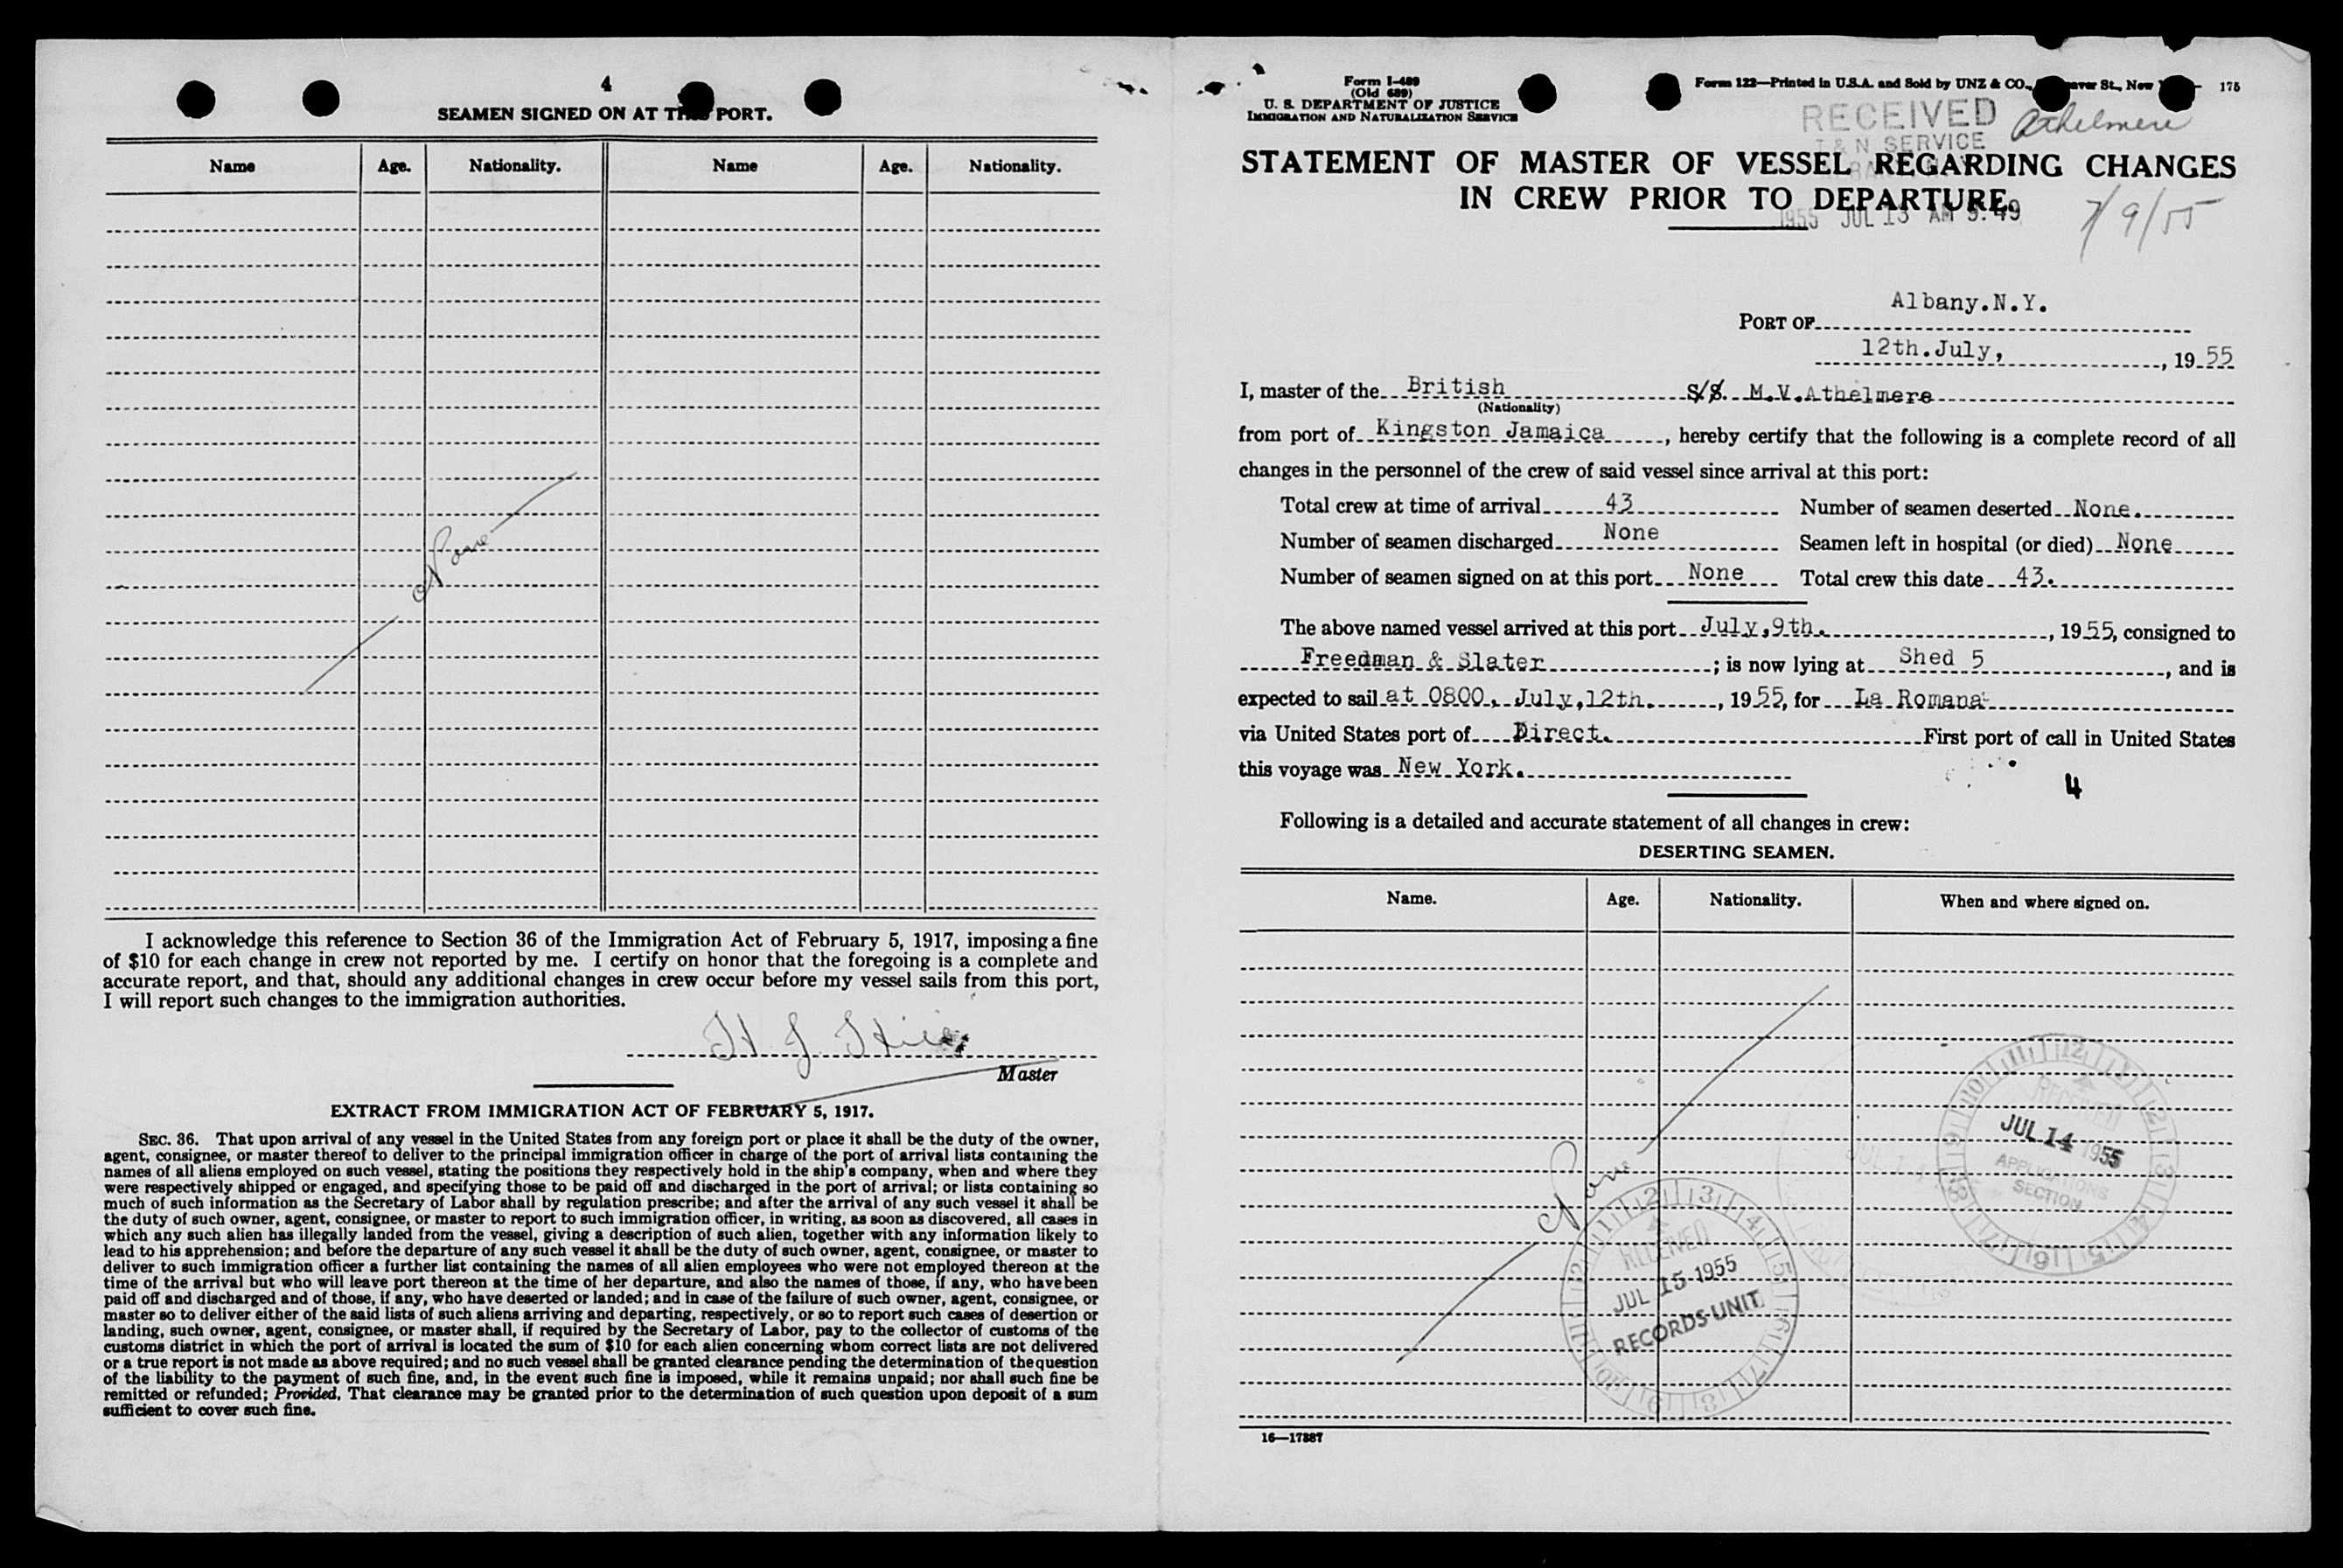 4
SEAMEN SIGNED ON AT THIS PORT.
Name Age. Nationality. Name Age. Nationality.
None
I acknowledge this reference to Section 36 of the Immigration Act of February 5, 1917, imposing a fine
of $10 for each change in crew not reported by me. I certify on honor that the foregoing is a complete and
accurate report, and that, should any additional changes in crew occur before my vessel sails from this port,
I will report such changes to the immigration authorities.
H J
Master
EXTRACT FROM IMMIGRATION ACT OF FEBRUARY 5, 1917.
SEC. 36. That upon arrival of any vessel in the United States from any foreign port or place it shall be the duty of the owner,
agent, consignee, or master thereof to deliver to the principal immigration officer in charge of the port of arrival lists containing the
names of all aliens employed on such vessel, stating the positions they respectively hold in the ship's company, when and where they
were respectively shipped or engaged, and specifying those to be paid off and discharged in the port of arrival; or lists containing so
much of such information as the Secretary of Labor shall by regulation prescribe; and after the arrival of any such vessel it shall be
the duty of such owner, agent, consignee, or master to report to such immigration officer, in writing, as soon as discovered, all cases in
which any such alien has illegally landed from the vessel, giving a description of such alien, together with any information likely to
lead to his apprehension; and before the departure of any such vessel it shall be the duty of such owner, agent, consignee, or master to
deliver to such immigration officer a further list containing the names of all alien employees who were not employed thereon at the
time of the arrival but who will leave port thereon at the time of her departure, and also the names of those, if any, who have been
paid off and discharged and of those, if any, who have deserted or landed; and in case of the failure of such owner, agent, consignee, or
master so to deliver either of the said lists of such aliens arriving and departing, respectively, or so to report such cases of desertion or
landing, such owner, agent, consignee, or master shall, if required by the Secretary of Labor, pay to the collector of customs of the
customs district in which the port of arrival is located the sum of $10 for each alien concerning whom correct lists are not delivered
or a true report is not made as above required; and no such vessel shall be granted clearance pending the determination of the question
of the liability to the payment of such fine, and, in the event such fine is imposed, while it remains unpaid; nor shall such fine be
remitted or refunded; Provided, That clearance may be granted prior to the determination of such question upon deposit of a sum
sufficient to cover such fine.
Form I-489
(Old 689)
U. S. DEPARTMENT OF JUSTICE
IMMIGRATION AND NATURALIZATION SERVICE
Form 122—Printed in U.S.A. and Sold by UNZ & CO., St., New 175
RECEIVED
I & N SERVICE
Athelmere
STATEMENT OF MASTER OF VESSEL REGARDING CHANGES
IN CREW PRIOR TO DEPARTURE.
1955 JUL 13 AM 9:49
7/9/55
Albany.N.Y.
PORT OF
12th.July, , 1955
I, master of the British S/S. M.V.Athelmere
(Nationality)
from port of Kingston Jamaica, hereby certify that the following is a complete record of all
changes in the personnel of the crew of said vessel since arrival at this port:
Total crew at time of arrival 43 Number of seamen deserted None.
Number of seamen discharged None Seamen left in hospital (or died) None
Number of seamen signed on at this port None Total crew this date 43.
The above named vessel arrived at this port July,9th. , 1955, consigned to
Freedman & Slater ; is now lying at Shed 5 , and is
expected to sail at 0800, July,12th. , 1955, for La Romana
via United States port of Direct. First port of call in United States
this voyage was New York.
4
Following is a detailed and accurate statement of all changes in crew:
DESERTING SEAMEN.
Name. Age. Nationality. When and where signed on.
None
RECEIVED
JUL 14 1955
APPLICATIONS
SECTION
RECEIVED
JUL 15 1955
RECORDS UNIT
16—17887